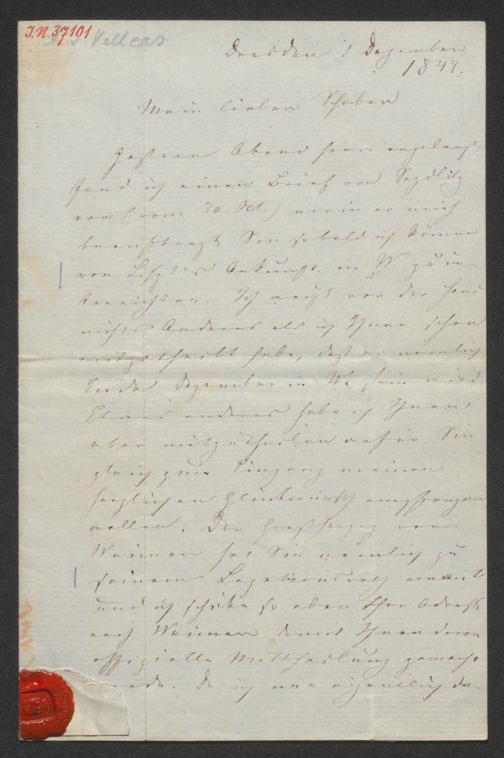 I.N. 37101
Villers
Dresden 1 Dezember
1844.
Mein lieber Schober
Gestern Abend hier angelangt
fand ich einen Brief von Seydlitz
vor (vom 30. Oct.) worin er mich
beauftragt Sie sobald ich könne
von Liszt's Ankunft in W zu
berichten. Ich weiß von der
nichts Anderes als ich Ihnen schon
mitgetheilt habe, daß er nämlich
Ende Dezember in W. sein wird
Etwas anderes habe ich Ihnen
aber mitzutheilen wofür Sie
gleich zum Eingang meinen
herzlichen Glückwunsch empfangen
wollen. Der Großherzog von
Weimar hat Sie nämlich zu
seinem Legationsrath ernannt
und ich schicke so eben Ihre Adresse
nach Weimar damit Ihnen deren
offizielle Mittheilung gemacht
werde. Da ich nun eigentlich